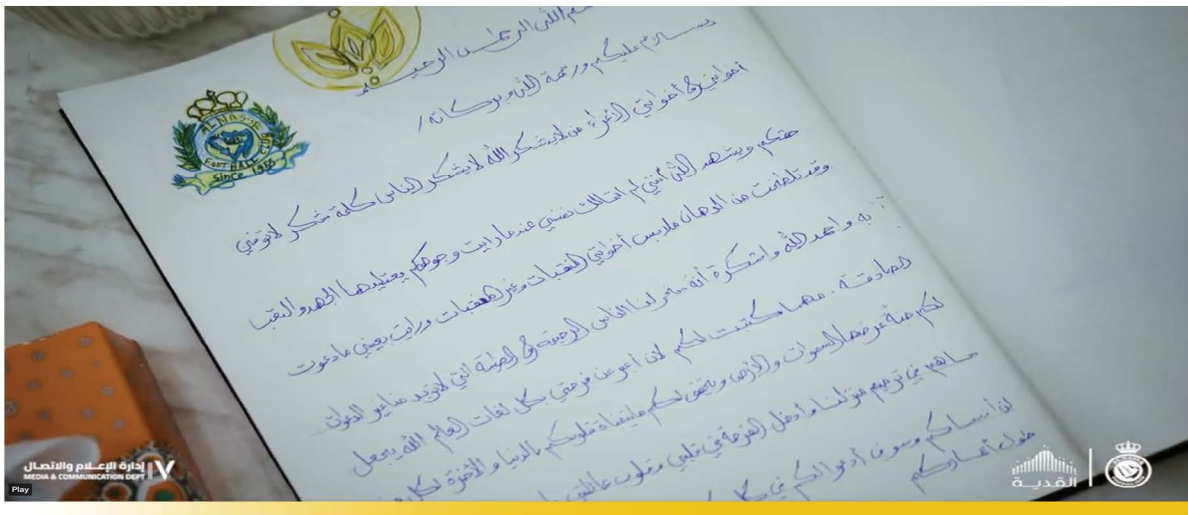 بسم الله الرحمن الرحيم
السلام عليكم ورحمة الله وبركاته /
أخواني و أخواتي الأعزاء من لا يشكر الله لا يشكر الناس كلمة شكر لا توفي
حقكم ويشهد الله أنني لم اتمالك نفسي عندما رايت وجوهكم يعتليها الجهد والتعب
وقد تلطخت من الدهان ملابس أخواتي المنقبات وغير المنقبات ورايت بعيني ما دعوت
به واحمد الله واشكرة أنه سخر لنا الناس
الصادقة. مهما كتبت لكم لان أعبر عن فرحتي بكل لغات العالم الله يجعل
لكم جنة عرضها السموات والأرض ويحقق لكم بالدنيا و الآخرة لكل
ساهم في ترميم منزلنا و أدخل الفرحة في قلبي وقلوب عائلتي
لن أنساكم وسوف أدعوا لكم في كل
طول أعماركم
ALNASSR
FOOT BALL
Since 1955
إدارة الإعلام والاتصال
MEDIA & COMMUNICATION DEPT
Play
القدية